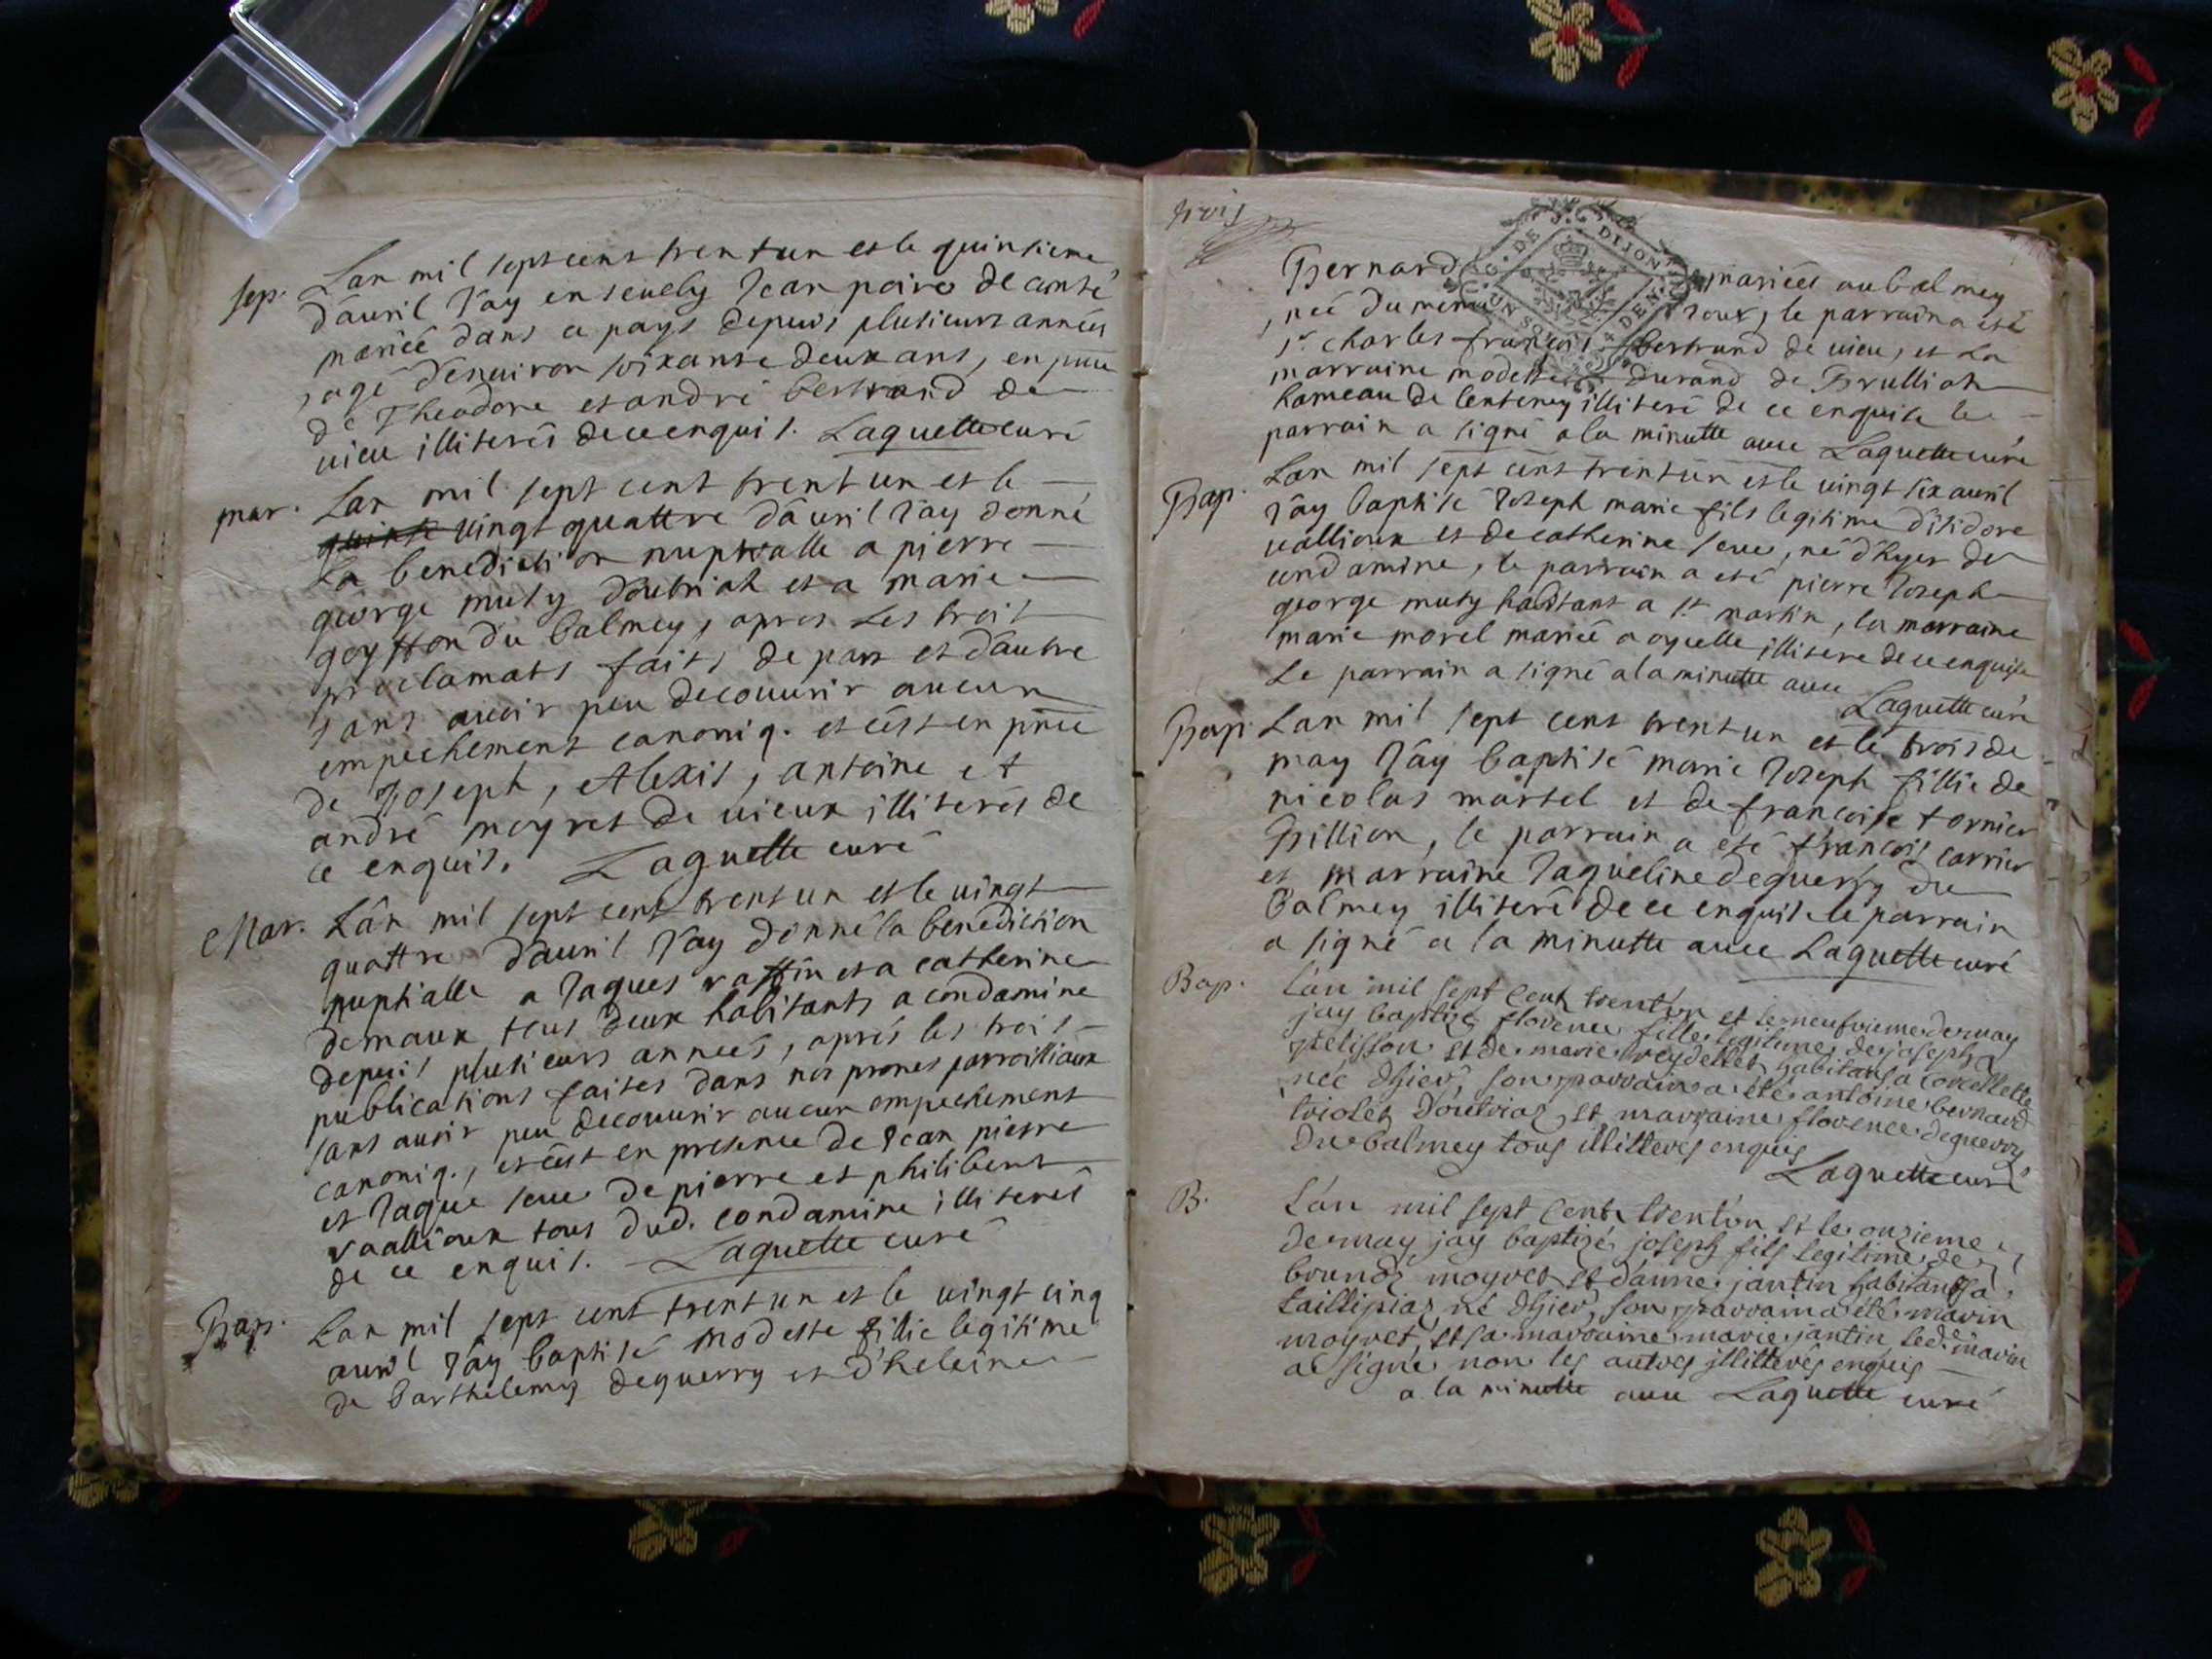 sep. Lan mil sept cens trent un et le quinsieme
d'auril J'ay enseuely Jean poire de comté
marieé dans ce pays depuis plusieurs années
, agé d'enuiron soixante deux ans, en pnce
de Theodore et andré bertrand de
uieu illiterés de ce enquis. Laguette curé
mar. Lan mil sept cent trent un et le
quinse uingt quattre d'auril J'ay donné
La benediction nuptialle a pierre
george muty d'outriak et a marie
goyffon du balmey, apres Les trois
proclamats faits de part et d'autre
sans auoir peu decouurir aucun
empechement canoniq. et c'est en pnce
de Joseph, Alexis, antoine et
andré moyret de uieux illiterés de
ce enquis. Laguette curé
Mar. Lan mil sept cent trent un et le uingt
quattre d'auril J'ay donné la benediction
nuptialle a Jaques raffin et a catherine
demaux tous deux habitants a condamine
depuis plusieurs anneés, aprés les trois
publications faites dans nos prones parroissiaux
sans auoir peu decouurir aucun empechement
canoniq., et c'est en presence de Jean pierre
et Jaque seue de pierre et philibert
vaallioux tous dud. condamine illiterés
de ce enquis. Laguette curé
Bap. Lan mil sept cent trent un et le uingt cinq
auril J'ay baptisé modeste fillie legitime
de barthelemy deguerry et d'heleine
trois
Bernard mariées au balmey
, neé du meme jour, le parrain a esté
sr charles françois bertrand de uieu, et La
marraine modeste durand de Brulliat
hameau de lentenay illiteré de ce enquise le
parrain a signé a la minutte auec Laguette curé
Bap. Lan mil sept cens trent un et le uingt six auril
J'ay baptisé Joseph marie fils legitime d'isidore
uallioux et de catherine seue, né d'hyer de
condamine, le parrain a eté pierre Joseph
george muty habitant a st martin, la marraine
marie morel marieé a oyselle illitere de ce enquise
Le parrain a signé a la minutte auec
Laguette curé
Bap. Lan mil sept cens trent un et le trois de
may J'ay baptisé marie Joseph fillie de
nicolas martel et de françoise tornier
Brillion, le parrain a eté françois carrier
et marraine Jaqueline deguerry du
balmey illiteré de ce enquise le parrain
a signé a la minutte auec Laguette curé
Bap. L'an mil sept cent trent'un et le neufuieme de may
jay baptizé florence fille legitime de joseph
pelisson et de marie reydellet habitans a corcellette
neé d'hier, son parrain a été antoine bernard
triolet d'outriaz, et marraine florence deguerry
du balmey tous illitterés enquis
Laguette curé
B. L'an mil sept cent trent'un et le onzieme
de may jay baptizé joseph fils legitime de
brunoz moyret et d'anne jantin habitants a
taillipiaz né d'hier, son parrain a été marin
moyret, et sa marraine marie jantin led. marin
a signé non les autres illitterés enquis
a la minutte auec Laguette curé